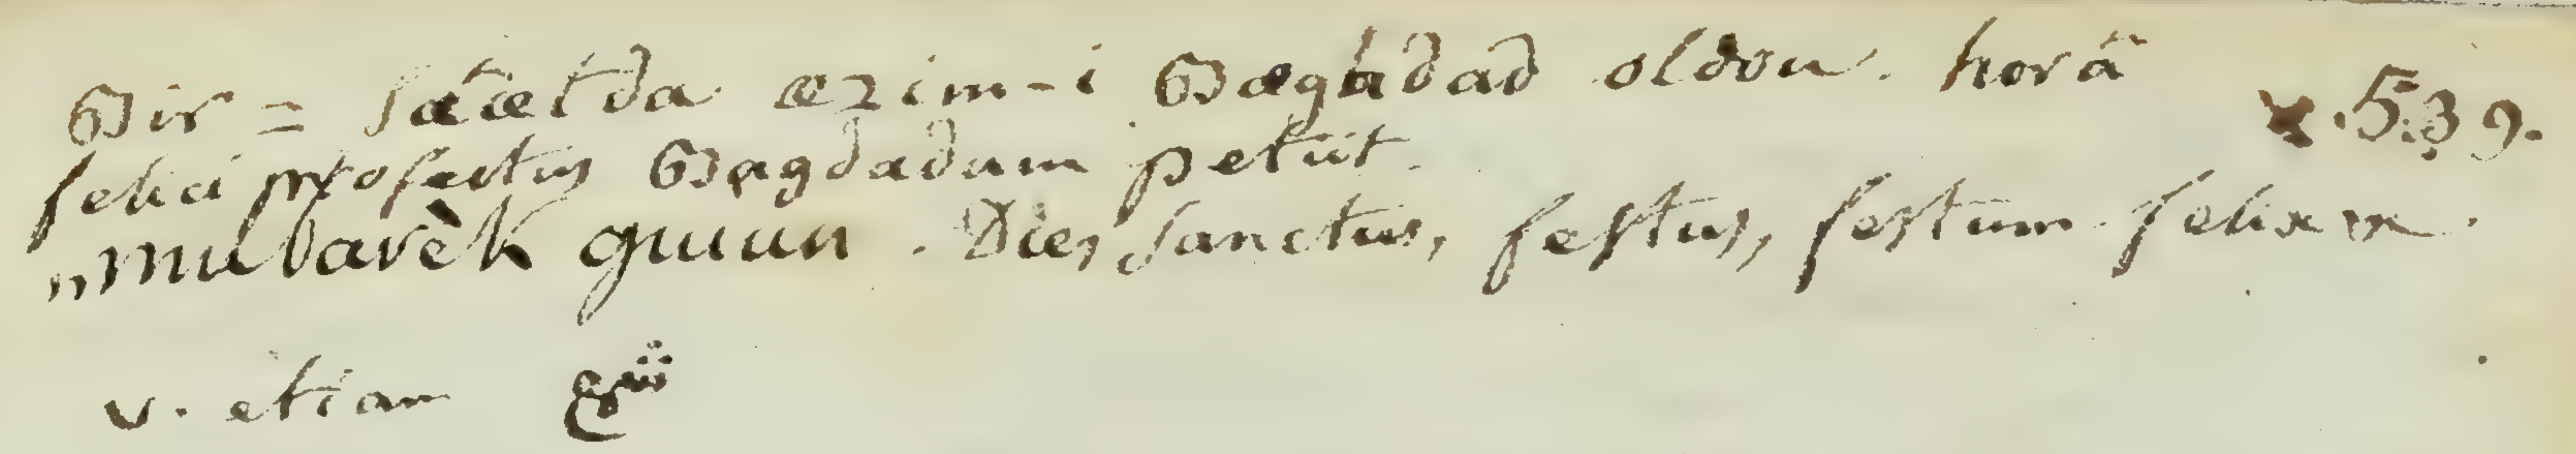 Bir = sáætda æzim-i Bægdad oldou. horâ
x. 539.
felici profectus Bagdadum petiit.
„mubarèk guun. Dies Sanctus, festus, festum felix
v. etiam